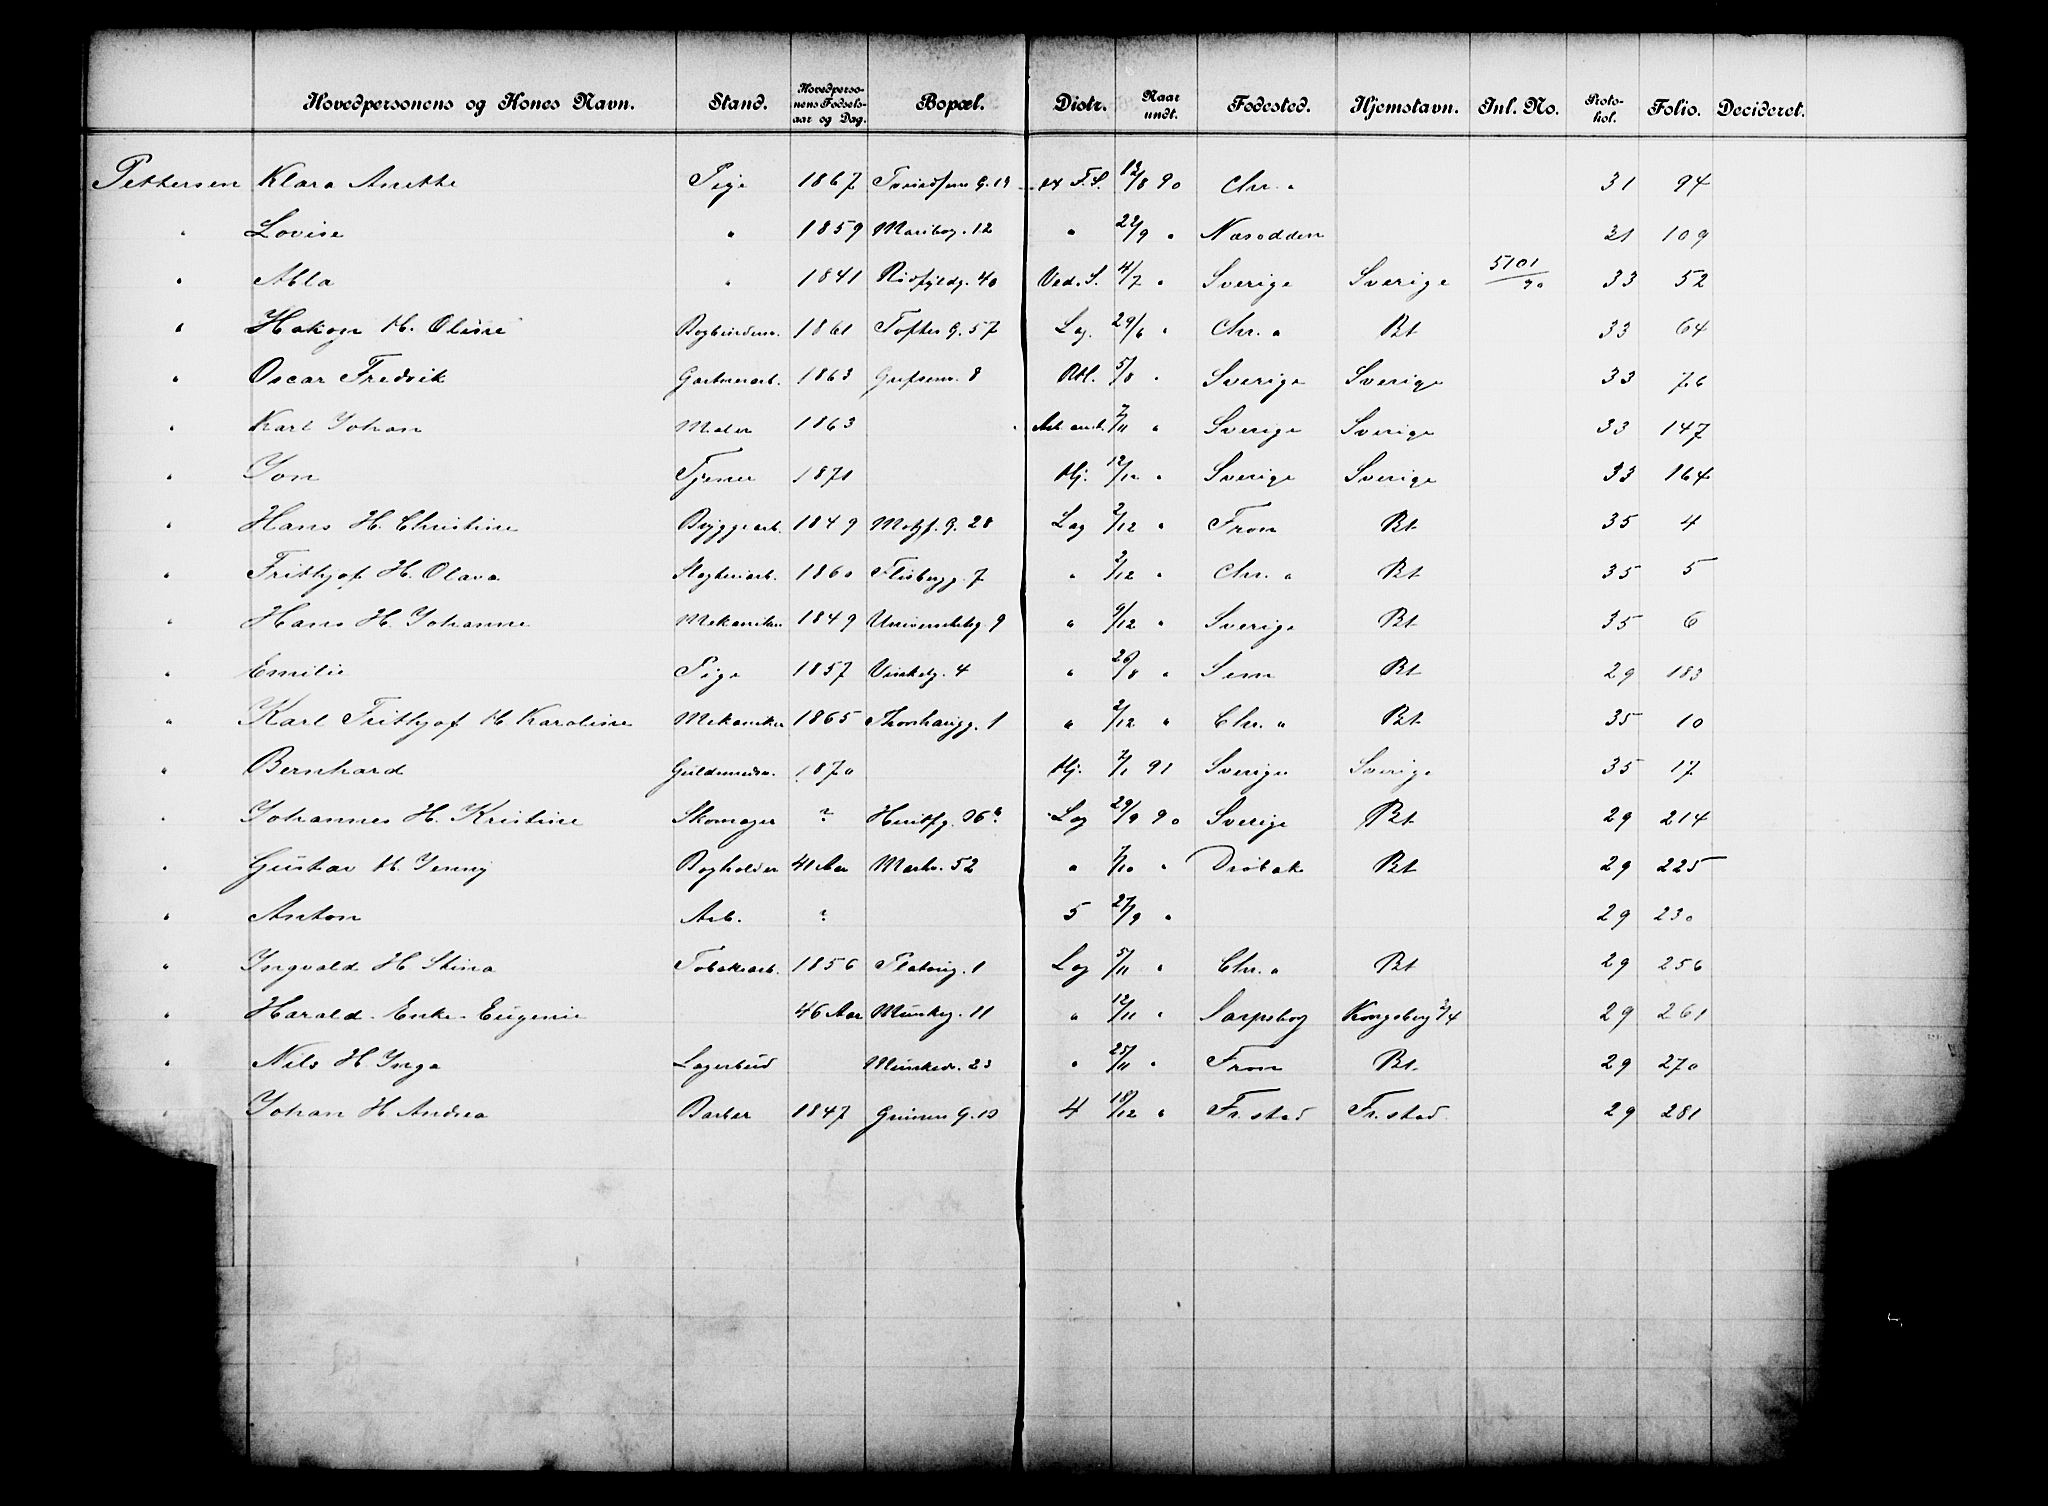 Hovedpersonens og Kones Navn. Stand. Hovedpersonens Fødselsaar og Dag. Bopæl. Distr. Naar undt. Fødested. Hjemstavn. Inl. No. Protokol. Folio. Decideret.
Pettersen Klara Anette Pige 1867 G. 19 F.S. 12/8 90 Chr.a 31 94
" Lovise " 1859 Maribog. 12 " 22/9 " Næsodden 31 109
" Abla " 1841 40 Ved. S. 4/7 " Sverige Sverige 5101/90 33 52
" Hakon H. Oline Bogbinders. 1861 Toftes G. 57 Lag. 29/6 " Chr.a Bt 33 64
" Oscar Fredrik Garverarb. 1863 Grefsenv. 8 5/8 " Sverige Sverige 33 76
" Karl Johan Maler 1863 2/11 " Sverige Sverige 33 147
" Jon Tjener 1871 Hj. 12/12 " Sverige Sverige 33 164
" Hans H. Christine Bryggearb. 1849 Motzf. G. 28 Lag 2/12 " Fron Bt 35 4
" Frithjof H. Olava Slagteriarb. 1860 Flisbergg. 7 " 2/12 " Chr.a Bt 35 5
" Hans H. Johanne Mekaniker 1849 Universitetsg. 9 " 9/12 " Sverige Bt 35 6
" Emilie Pige 1857 Vinkelg. 4 " 26/8 " Sem Bt 29 183
" Karl Frithjof H. Karoline Mekaniker 1865 Thorshaugg. 1 " 2/12 " Chr.a Bt 35 10
" Bernhard Guldsmeds. 1870 Hj. 2/1 91 Sverige Sverige 35 17
" Johannes H. Kristine Skomager ? 26b Lag 29/9 90 Sverige Bt 29 214
" Gustav H. Jenny Bogholder 41 Aar Markv. 52 " 7/10 " Drøbak Bt 29 225
" Anton Arb. ? 5 27/9 " 29 230
" Ingvald H. Stina Tobaksarb. 1856 Platoug. 1 Lag 5/11 " Chr.a Bt 29 256
" Harald. Enke. Eugenie 46 Aar Munkg. 11 " 12/11 " Sarpsborg Kongsberg 3/4 29 261
" Nils H. Inga Lagerbud Munkedv. 23 " 25/11 " Fron Bt. 29 270
" Johan H. Andrea Barber 1847 Grüners G. 10 4 18/12 " Fr.stad Fr.stad. 29 281